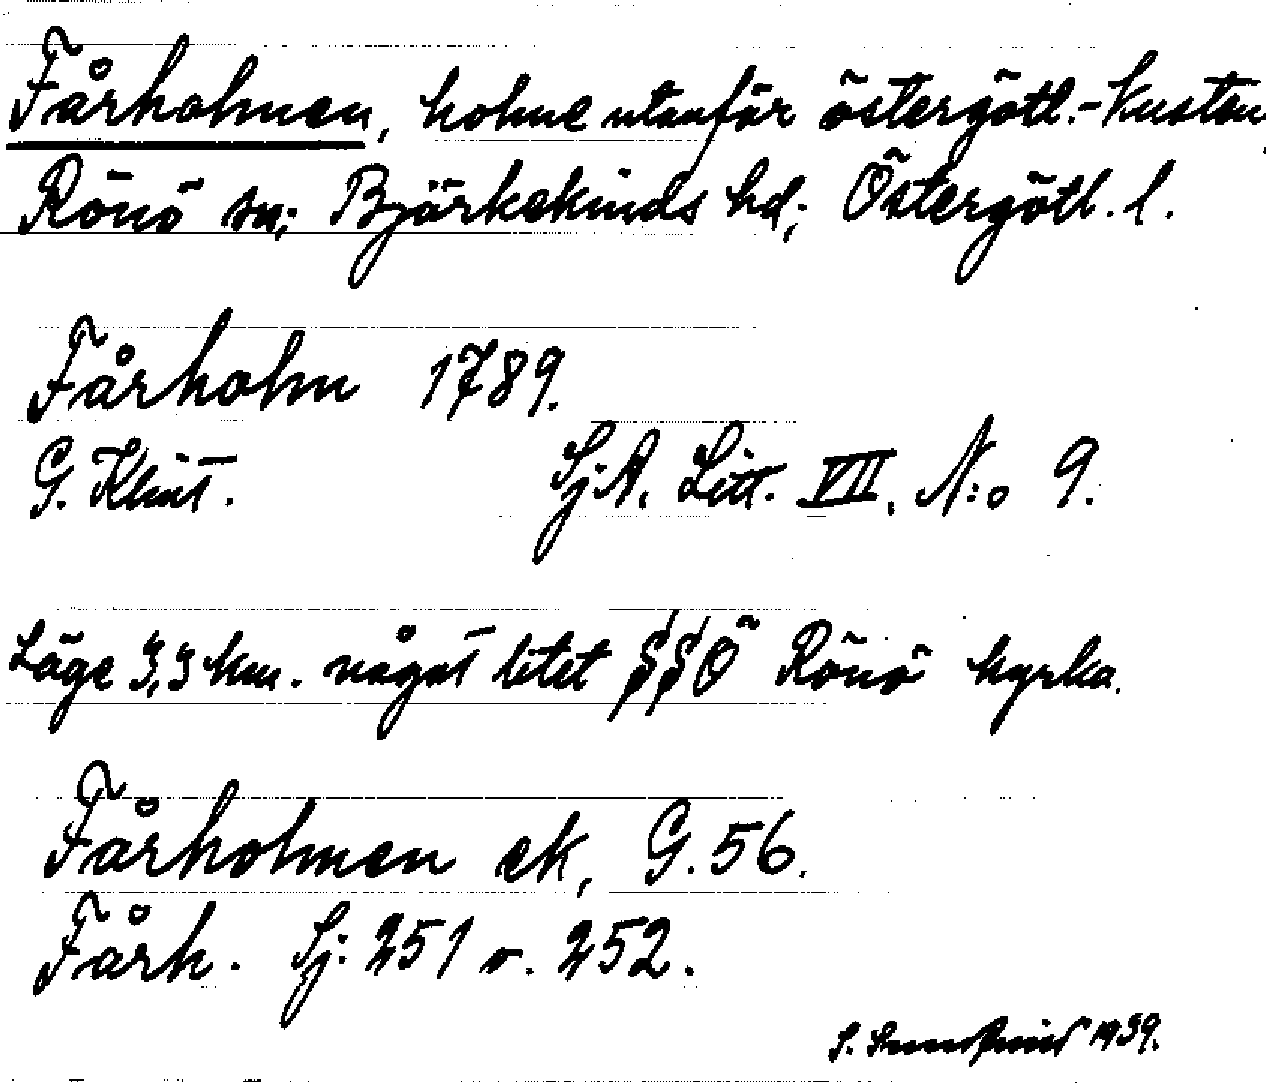 Fårholmen, holme utanför östergötl.-kusten,
Rönö sn; Björkekinds hd; Östergötl. l.
Fårholm 1789.
G. Klint. Sj.A. Litt. VII. N:o 9.
Läge 3,3 km. något litet SSÖ Rönö kyrka.
Fårholmen ek, G. 56.
Fårh. Sj. 251 o. 252.
S. 1939.